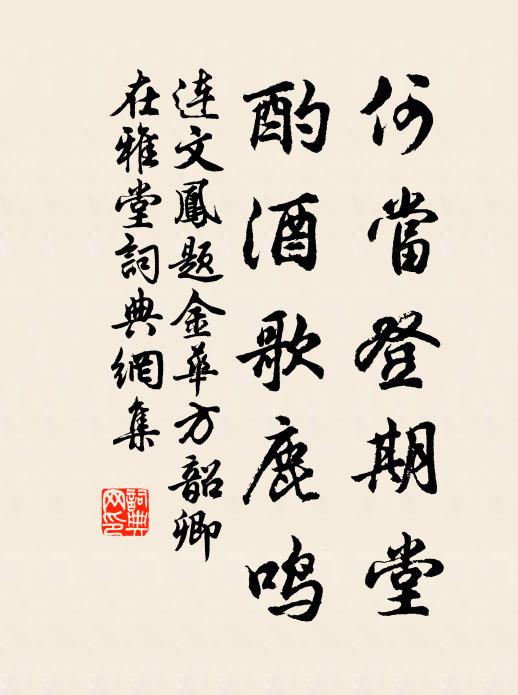 何當登期堂
酌酒歌鹿鳴
连文鳳題金華方韶卿
在雅堂詞典網集
詞典网印